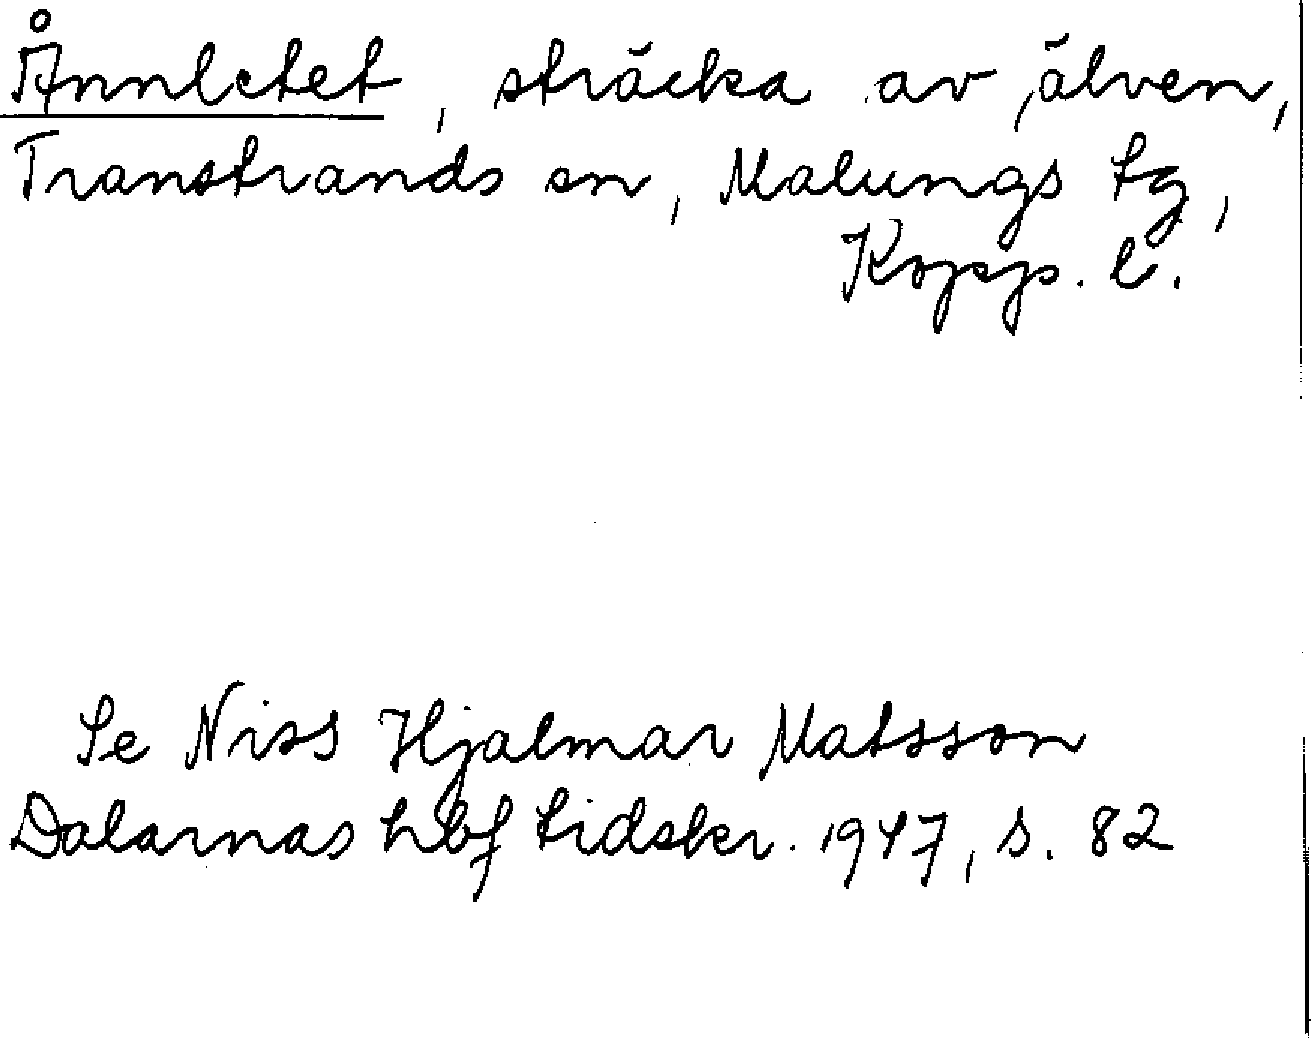 Ånnletet, sträcka av älven,
Transtrands sn, Malungs tg,
Kopp. l.
Se Niss Hjalmar Matsson
Dalarnas hbf tidskr. 1947, s. 82